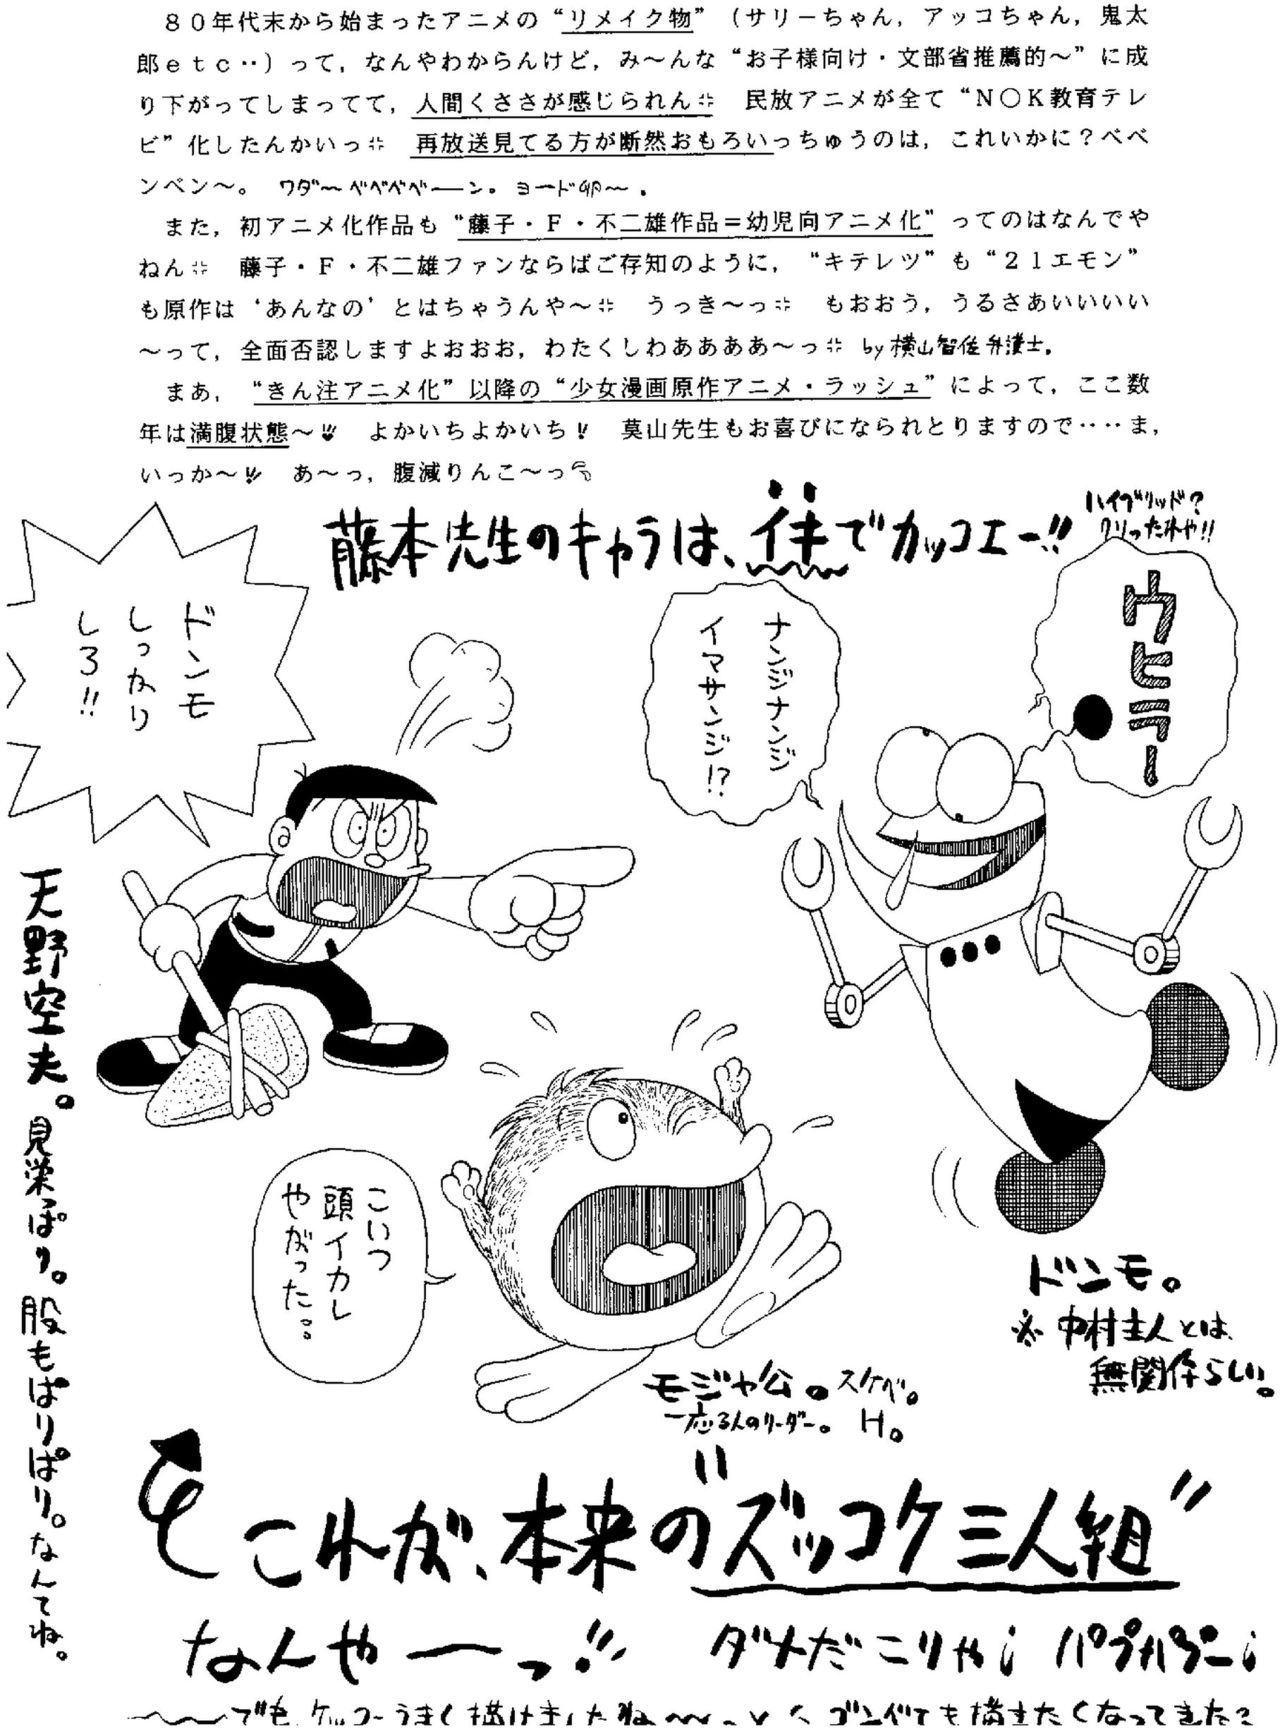 ８０年代末から始まったアニメの“リメイク物”（サリーちゃん，アッコちゃん，鬼太
郎ｅｔｃ‥）って，なんやわからんけど，み～んな“お子様向け・文部省推薦的～”に成
り下がってしまってて，人間くささが感じられん　民放アニメが全て“Ｎ〇Ｋ教育テレ
ビ”化したんかいっ　再放送見てる方が断然おもろいっちゅうのは，これいかに？ベベ
ンベン～。　ワダ～ベベベベーン。ヨード卵～．
また，初アニメ化作品も“藤子・Ｆ・不二雄作品＝幼児向アニメ化”ってのはなんでや
ねん　藤子・Ｆ・不二雄ファンならばご存知のように，“キテレツ”も“２１エモン”
も原作は‘あんなの’とはちゃうんや～　うっき～っ　もおおう，うるさあいいいい
～って，全面否認しますよおおお，わたくしわああああ～っ　by 横山智佐弁護士．
まあ，“きん注アニメ化”以降の“少女漫画原作アニメ・ラッシュ”によって，ここ数
年は満腹状態～!!　よかいちよかいち！　莫山先生もお喜びになられとりますので‥‥ま，
いっか～!!　あ～っ，腹減りんこ～っ
藤本先生のキャラは、イキでカッコエー!!
ハイブリッド？
クリったれや!!
ウヒラー
ナンジナンジ
イマサンジ!?
ドンモ
しっかり
しろ!!
天野空夫。見栄っぱり。股もぱりぱり。なんてね。
こいつ
頭イカレ
やがった‥
ドンモ。
※中村主人とは、
無関係らしい。
モジャ公。スケベ。
一応3人のリーダー。H。
これが、本来の“ズッコケ三人組”
なんやーーっ!!　ダメだこりゃ¡　パプパプー¡
～～でも、ケッコーうまく描けましたね～～っ